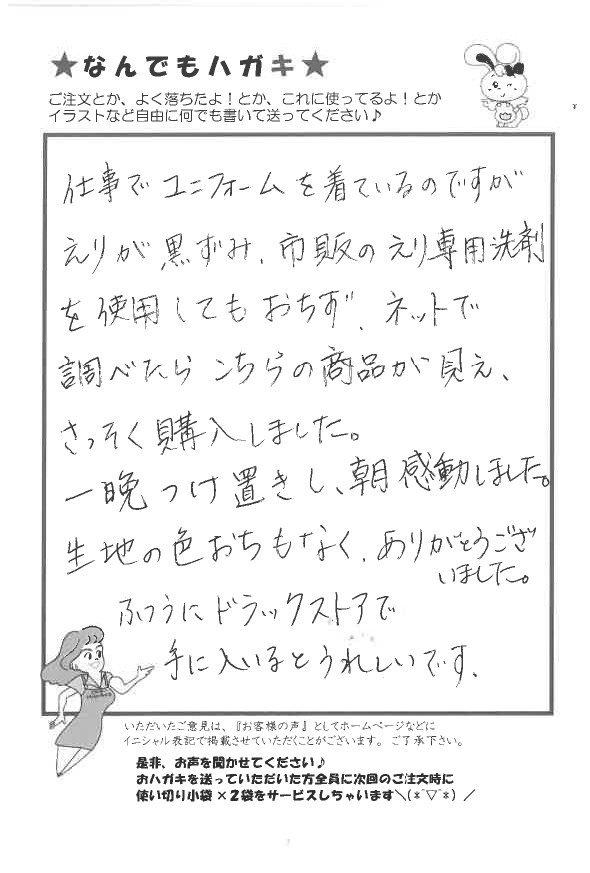 ★なんでもハガキ★
ご注文とか、よく落ちたよ！とか、これに使ってるよ！とか
イラストなど自由に何でも書いて送ってください♪
仕事でユニフォームを着ているのですが
えりが黒ずみ、市販のえり専用洗剤
を使用してもおちず、ネットで
調べたらこちらの商品が見え、
さっそく購入しました。
一晩つけ置きし、朝感動しました。
生地の色おちもなく、ありがとうござ
いました。
ふつうにドラックストアで
手に入いるとうれしいです。
いただいたご意見は、『お客様の声』としてホームページなどに
イニシャル表記で掲載させていただくことがございます。ご了承下さい。
是非、お声を聞かせてください♪
おハガキを送っていただいた方全員に次回のご注文時に
使い切り小袋×２袋をサービスしちゃいます＼(*^▽^*)／